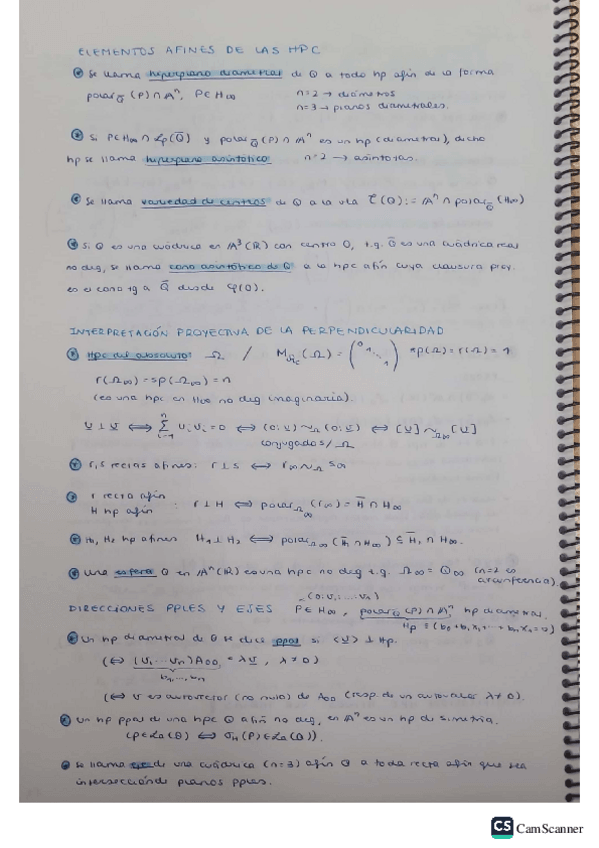 ELEMENTOS AFINES DE LAS HPC
Se llama hiperplano diametral de Q a todo hp afín de la forma
polar_Q̄(P)∩Aⁿ, P∈H∞ n=2 → diámetros
n=3 → planos diametrales.
Si P∈H∞∩ℒp(Q̄) y polar_Q̄(P)∩Aⁿ es un hp (diametral), dicho
hp se llama hiperplano asintótico n=2 → asíntotas.
Se llama variedad de centros de Q a la vla C(Q):= Aⁿ∩polar_Q̄(H∞)
Si Q es una cuádrica en A³(R) con centro O, t.q. Q̄ es una cuádrica real
no deg, se llama cono asintótico de Q a la hpc afín cuya clausura proy.
es el cono tg a Q̄ desde φ(O).
INTERPRETACIÓN PROYECTIVA DE LA PERPENDICULARIDAD
Hpc del absoluto: Ω / (Ω) = sp(Ω)=r(Ω)=
r(Ω∞)=sp(Ω∞)=n
(es una hpc en H∞ no deg imaginaria).
u⊥v ⟺ Σ uᵢvᵢ=0 ⟺ (0:u)~Ω(0:v) ⟺ [u]~Ω∞[v]
conjugados/Ω
r,s rectas afines: r⊥s ⟺ r∞~Ω s∞
r recta afín
H hp afín : r⊥H ⟺ polarΩ∞(r∞)=H̄∩H∞
H₁, H₂ hp afines H₁⊥H₂ ⟺ polarΩ∞(H̄₁∩H∞)⊆H̄₂∩H∞.
Una esfera Q en Aⁿ(R) es una hpc no deg t.q. Ω∞=Q∞ (n=2 es
circunferencia).
(0:v₁:...:vn)
DIRECCIONES PPLES Y EJES P∈H∞, polar_Q̄(P)∩Aⁿ hp diametral
Hp≡(b₀+b₁x₁+...+bnxn=0)
Un hp diametral de Q se dice ppal si <v>⊥Hp.
(⟺ (v₁...vn)A₀₀=λv, λ≠0)
b₁,...,bn
(⟺ v es autovector (no nulo) de A₀₀ (resp. de un autovalor λ≠0).
Un hp ppal de una hpc Q afín no deg, en Aⁿ es un hp de simetría.
(P∈ℒa(Q) ⟺ σH(P)∈ℒa(Q)).
Se llama eje de una cuádrica (n=3) afín Q a toda recta afín que sea
intersección de planos pples.
CS CamScanner